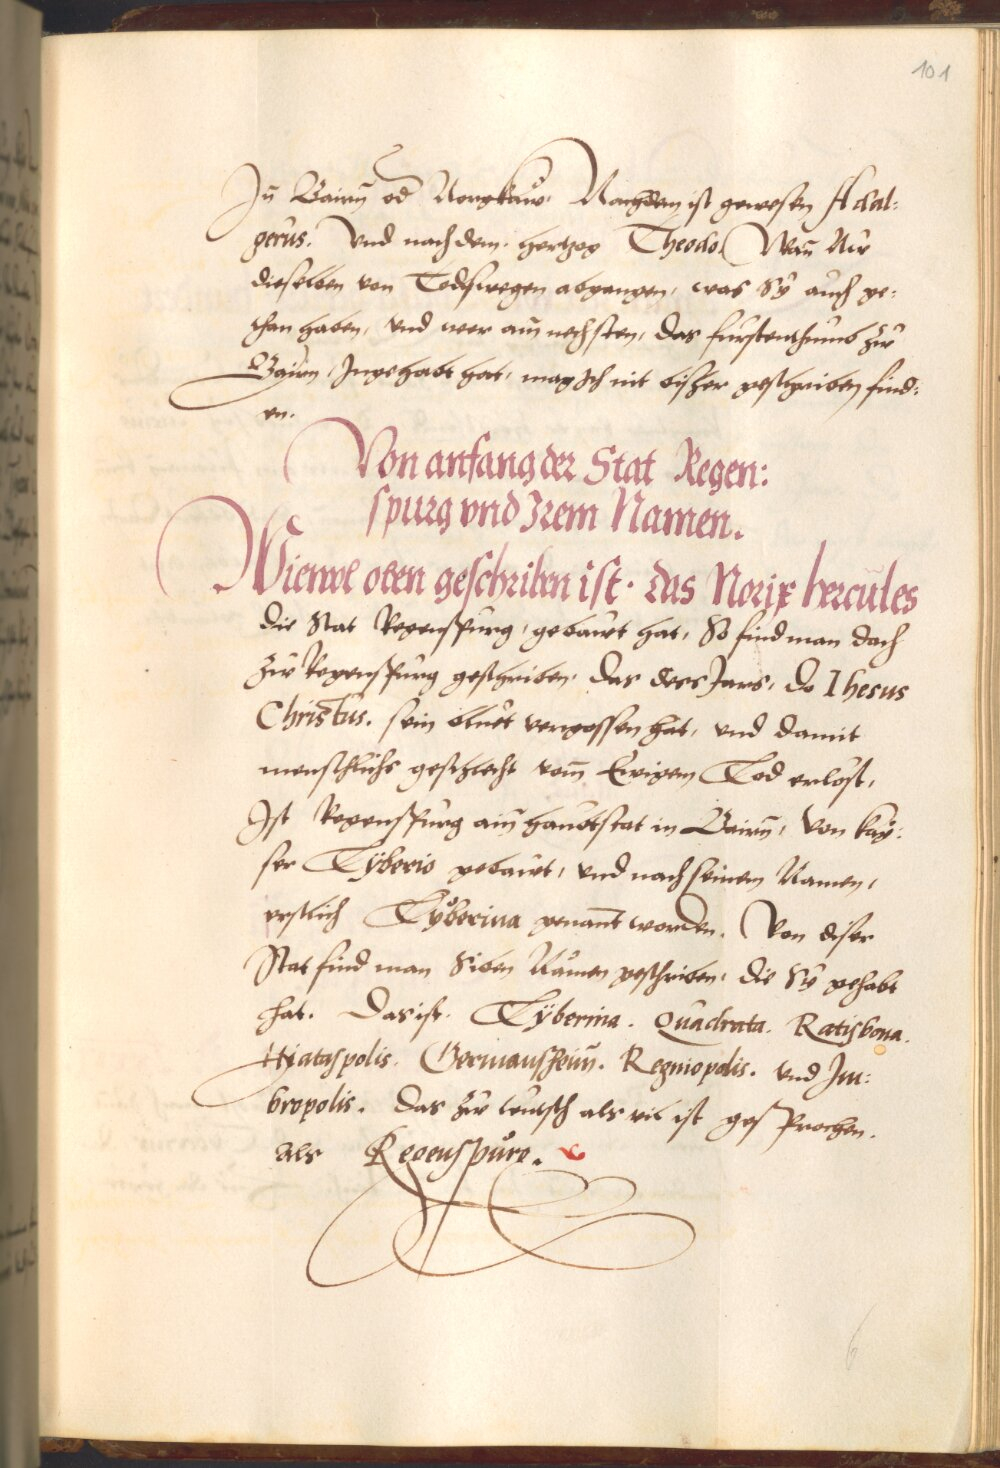 101
In Bairn od Norgkaw. Nachdem ist gewesen Adal:
gerus. Vnd nach dem. hertzog Theodo. Wan Nw
dieselben von Todswegen abgangen, was Sy auch ge:
than haben, vnd wer am nechsten, das furstenthumb zw
Bairn, Ingehabt hat, mag Ich nit bisher geschriben find:
en.
Von anfang der Stat Regen:
spurg vnd Irem Namen.
Wiewol oben geschriben ist. das Norix hercules
die Stat Regenspurg, gebawt hat, So find man doch
zw Regenspurg geschriben. das dess Jars, do Ihesus
Christus. sein bluet vergossen hat, vnd damit
menschlichs geschlecht vom Ewigem Tod erlöst,
Ist Regenspurg ain haubtstat in Bairn, Von kay:
ser Tyberio gebawt, vnd nach seinem Namen,
erstlich Tyberina genant worden. Von diser
Stat find man Siben Namen geschriben, die Sy gehabt
hat. Das ist. Tyberina. Quadrata. Ratisbona.
Hyataspolis. Germansheim. Regniopolis. vnd Im:
bropolis. Das zw teutsch als vil ist gesprochen.
als Regenspurg.